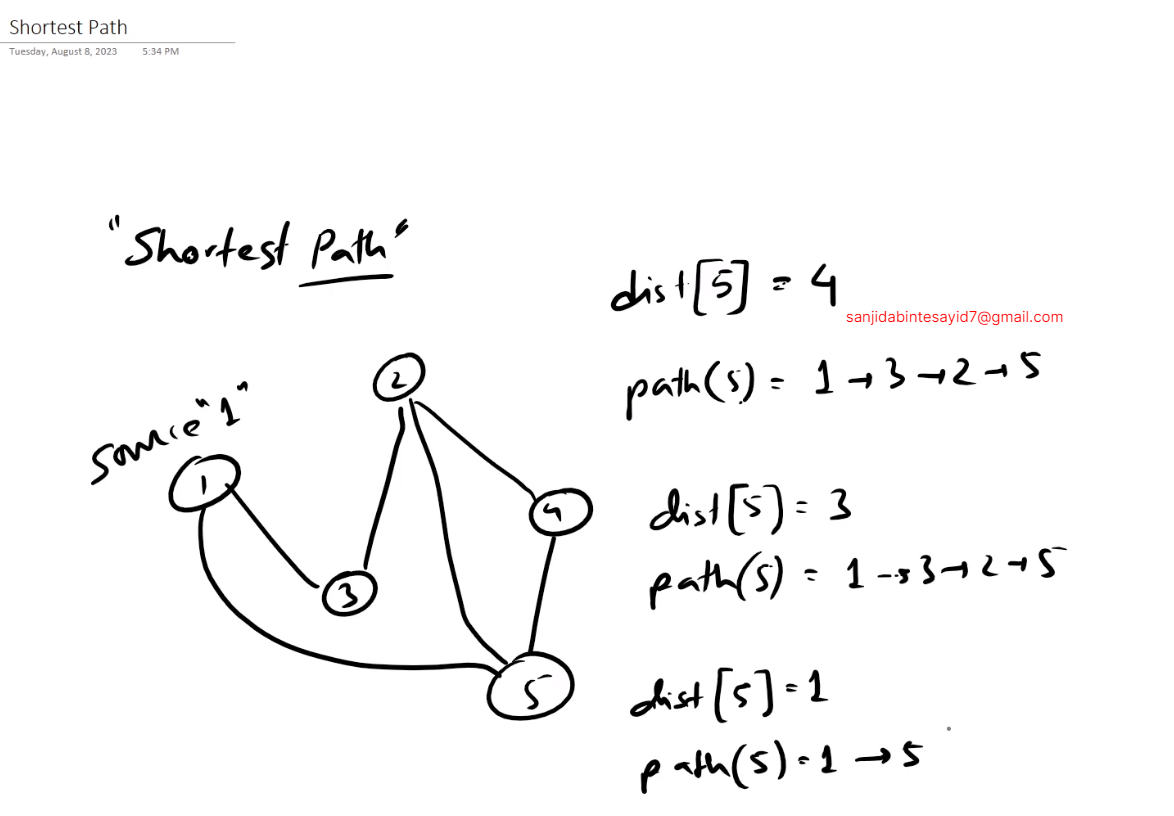 Shortest Path
Tuesday, August 8, 2023 5:34 PM
"Shortest Path"
dist[5] = 4
sanjidabintesayid7@gmail.com
path(5) = 1 → 3 → 2 → 5
source "1"
2
1
4
3
5
dist[5] = 3
path(5) = 1 → 3 → 2 → 5
dist[5] = 1
path(5) = 1 → 5